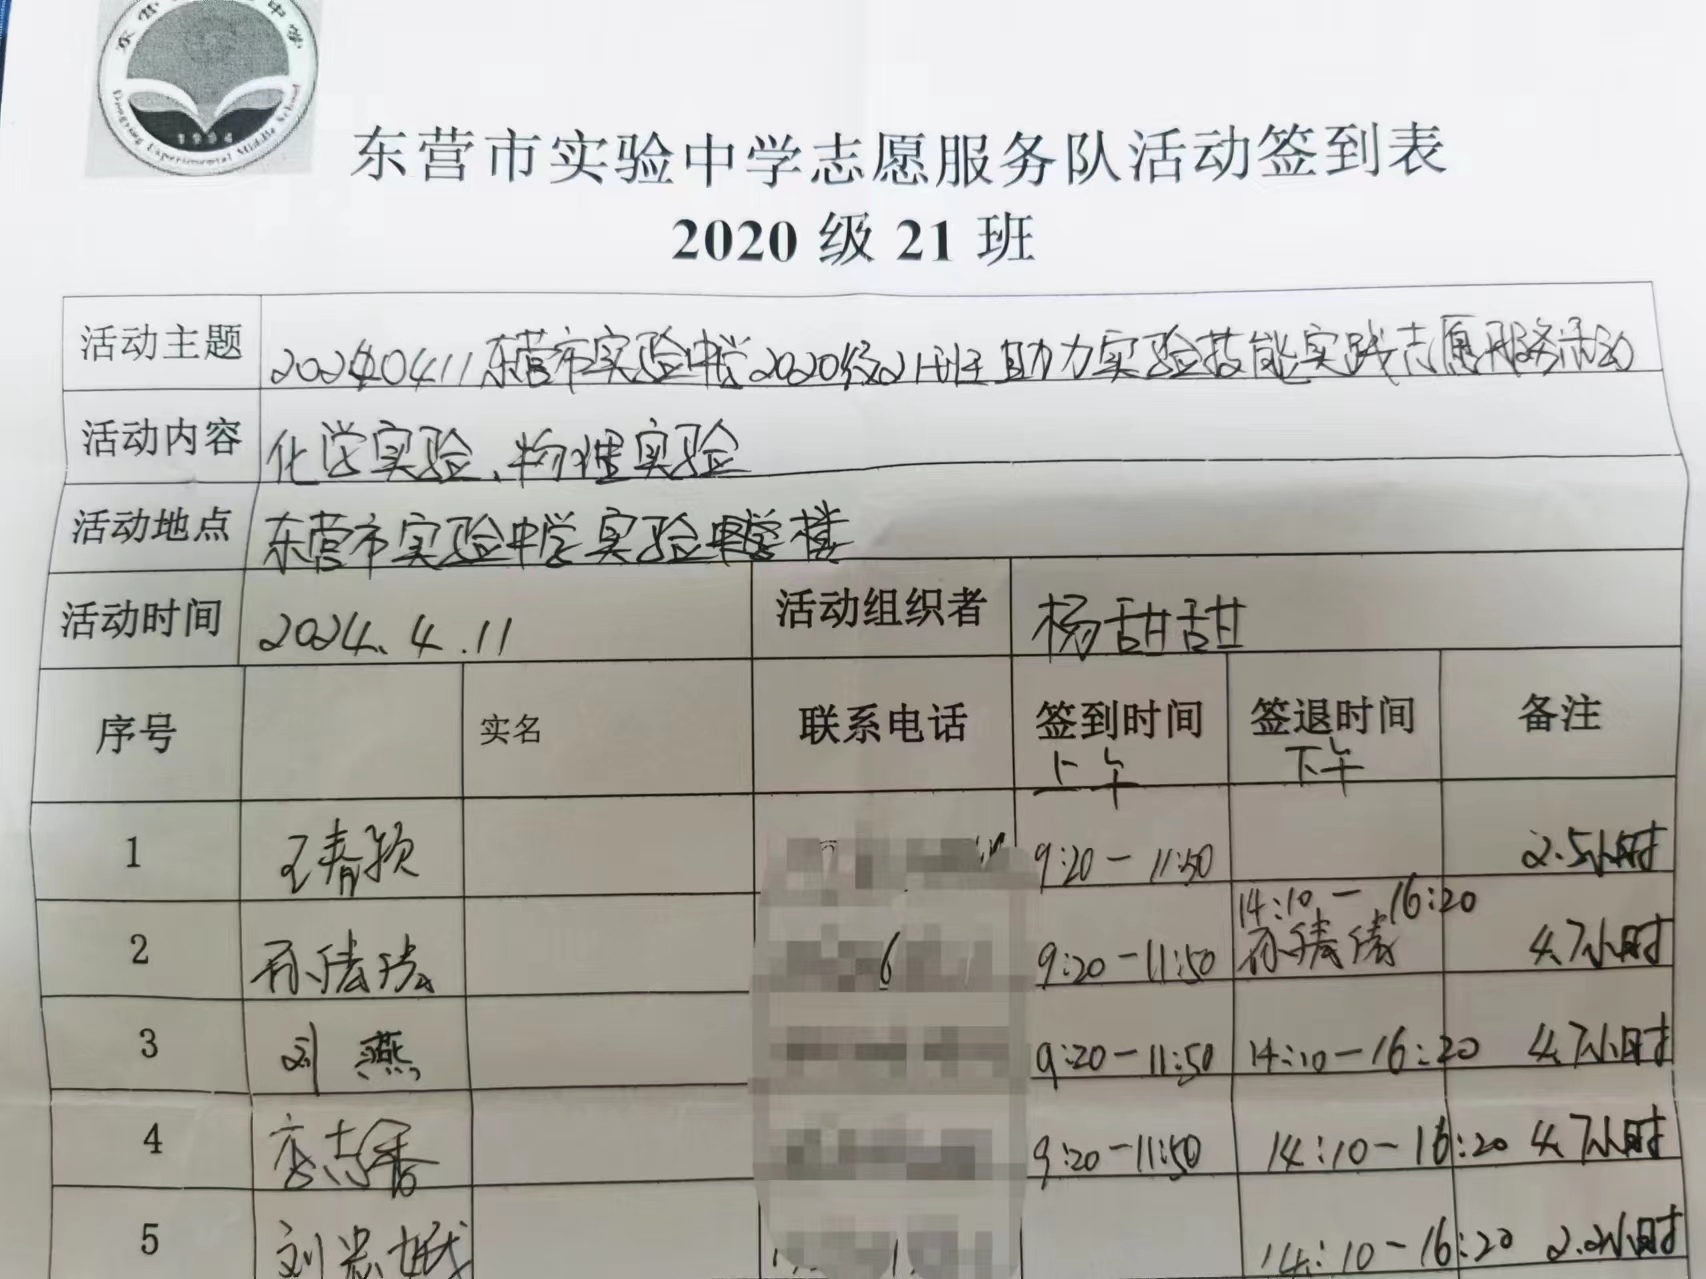 Dongying Experimental Middle School
1994
东营市实验中学志愿服务队活动签到表
2020 级 21 班
活动主题 20240411东营市实验中学2020级21班 助力实验技能实践志愿服务活动
活动内容 化学实验、物理实验
活动地点 东营市实验中学实验楼
活动时间 2024.4.11 活动组织者 杨甜甜
序号 实名 联系电话 签到时间 签退时间 备注
上午 下午
1 王春颖 9:20-11:50 2.5小时
14:10-16:20
2 孙倩倩 9:20-11:50 孙倩倩 4.7小时
3 刘燕 9:20-11:50 14:10-16:20 4.7小时
4 志香 9:20-11:50 14:10-16:20 4.7小时
5 刘 14:10-16:20 2.2小时